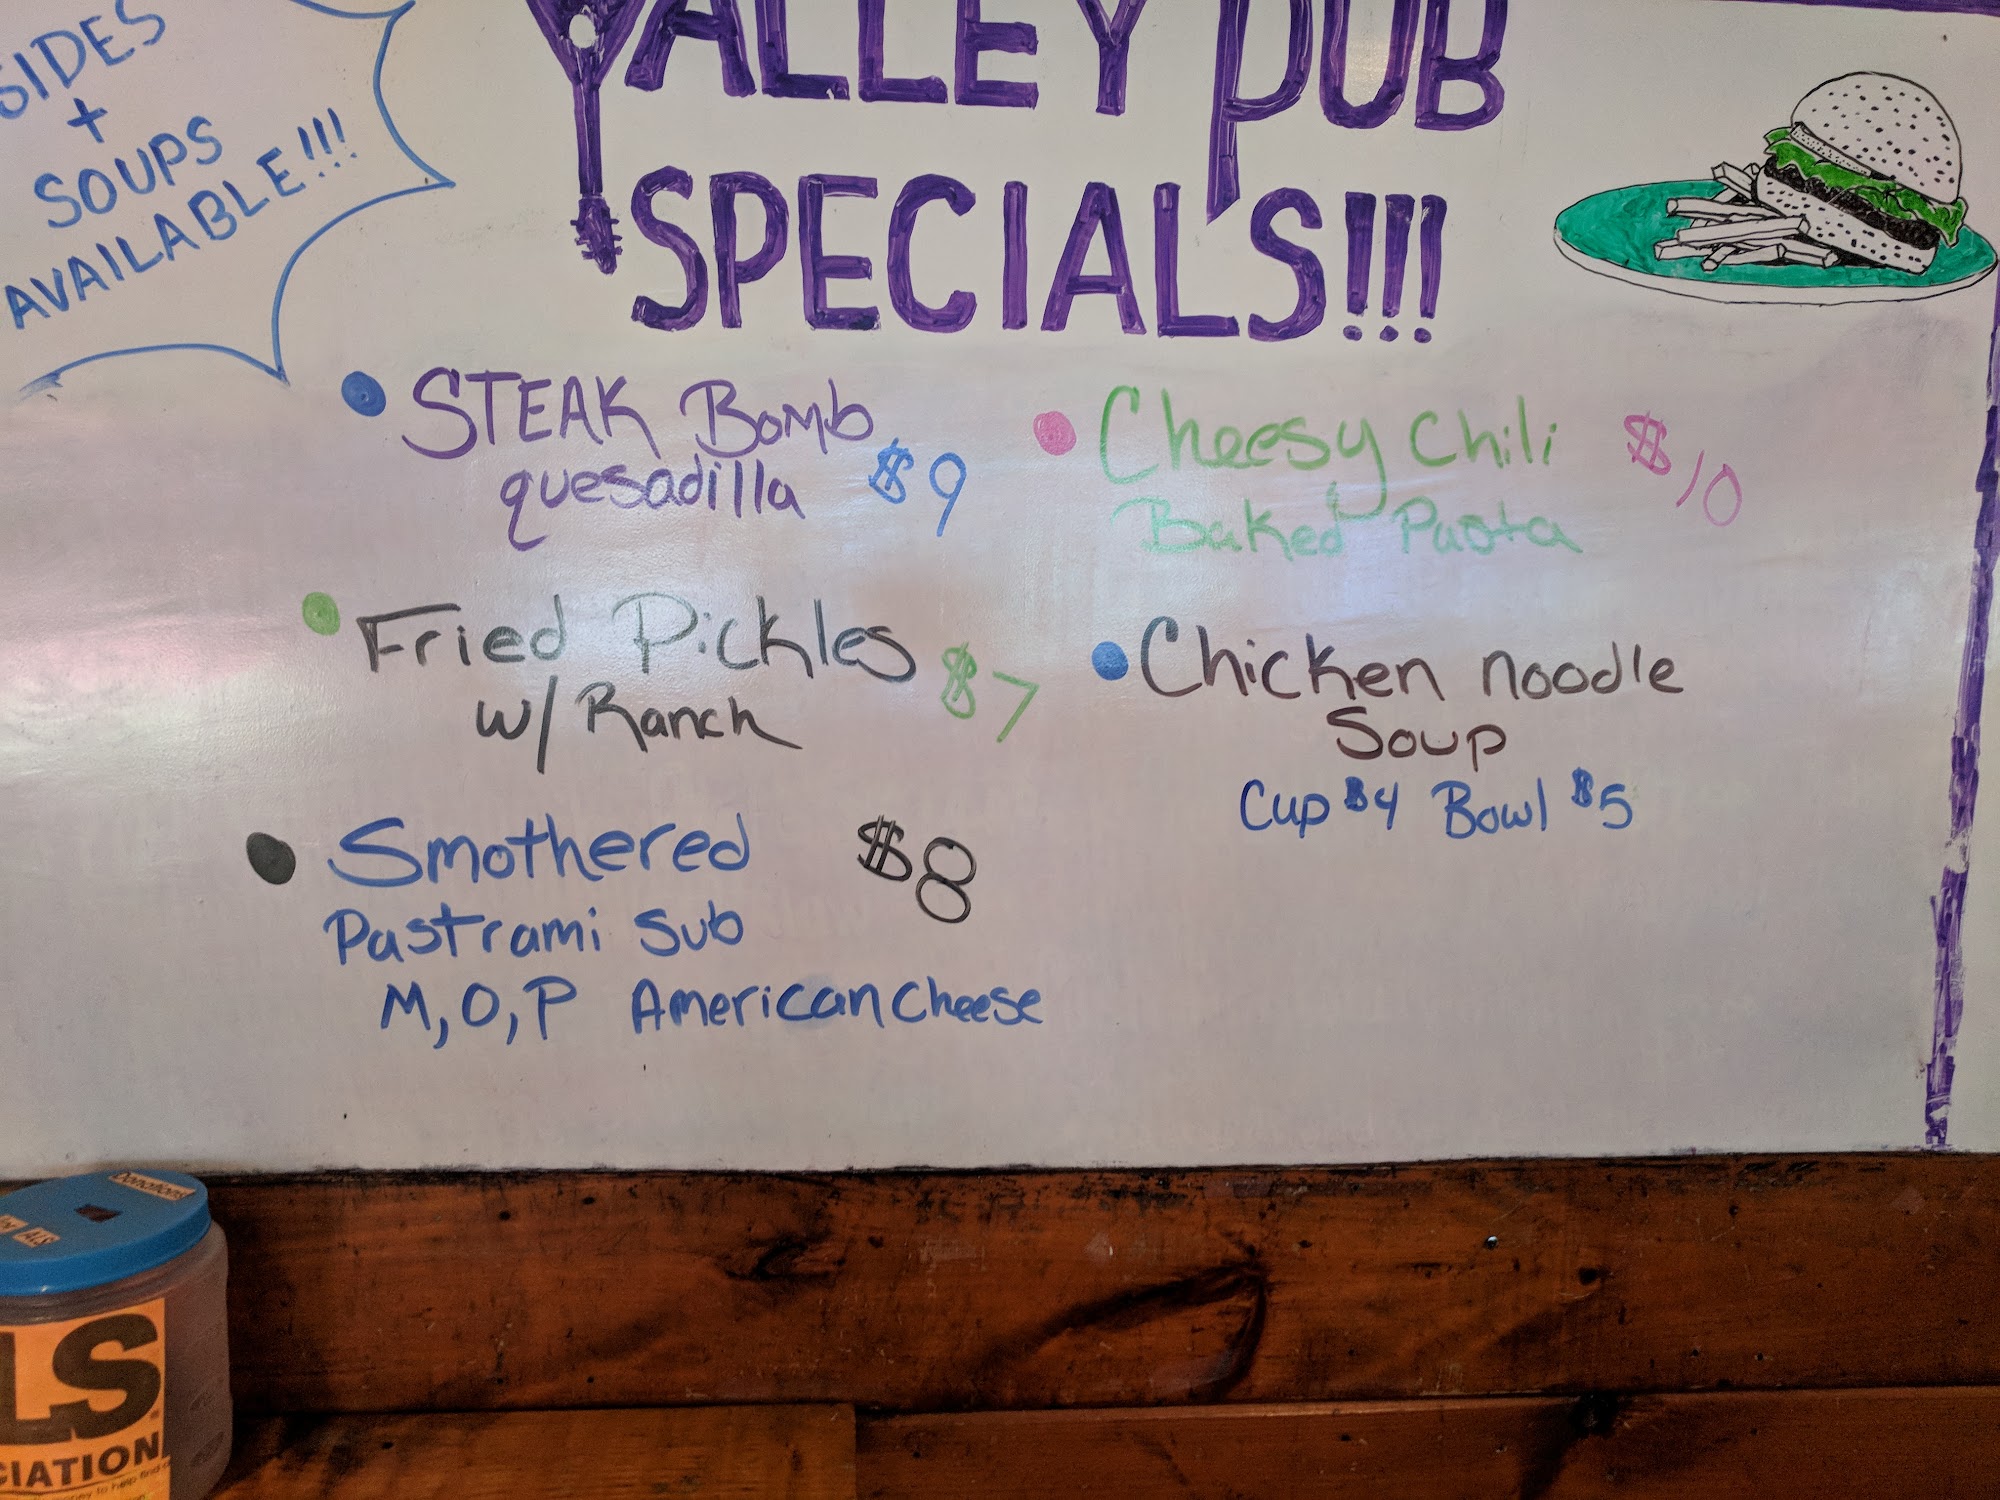 SIDES
+
SOUPS
AVAILABLE!!!
VALLEY PUB
SPECIALS!!!
STEAK Bomb
quesadilla $9
Fried Pickles
w/ Ranch $7
Smothered $8
Pastrami Sub
M, O, P American Cheese
Cheesy Chili $10
Baked Pasta
Chicken noodle
Soup
Cup $4 Bowl $5
Donations
ALS
LS
CIATION